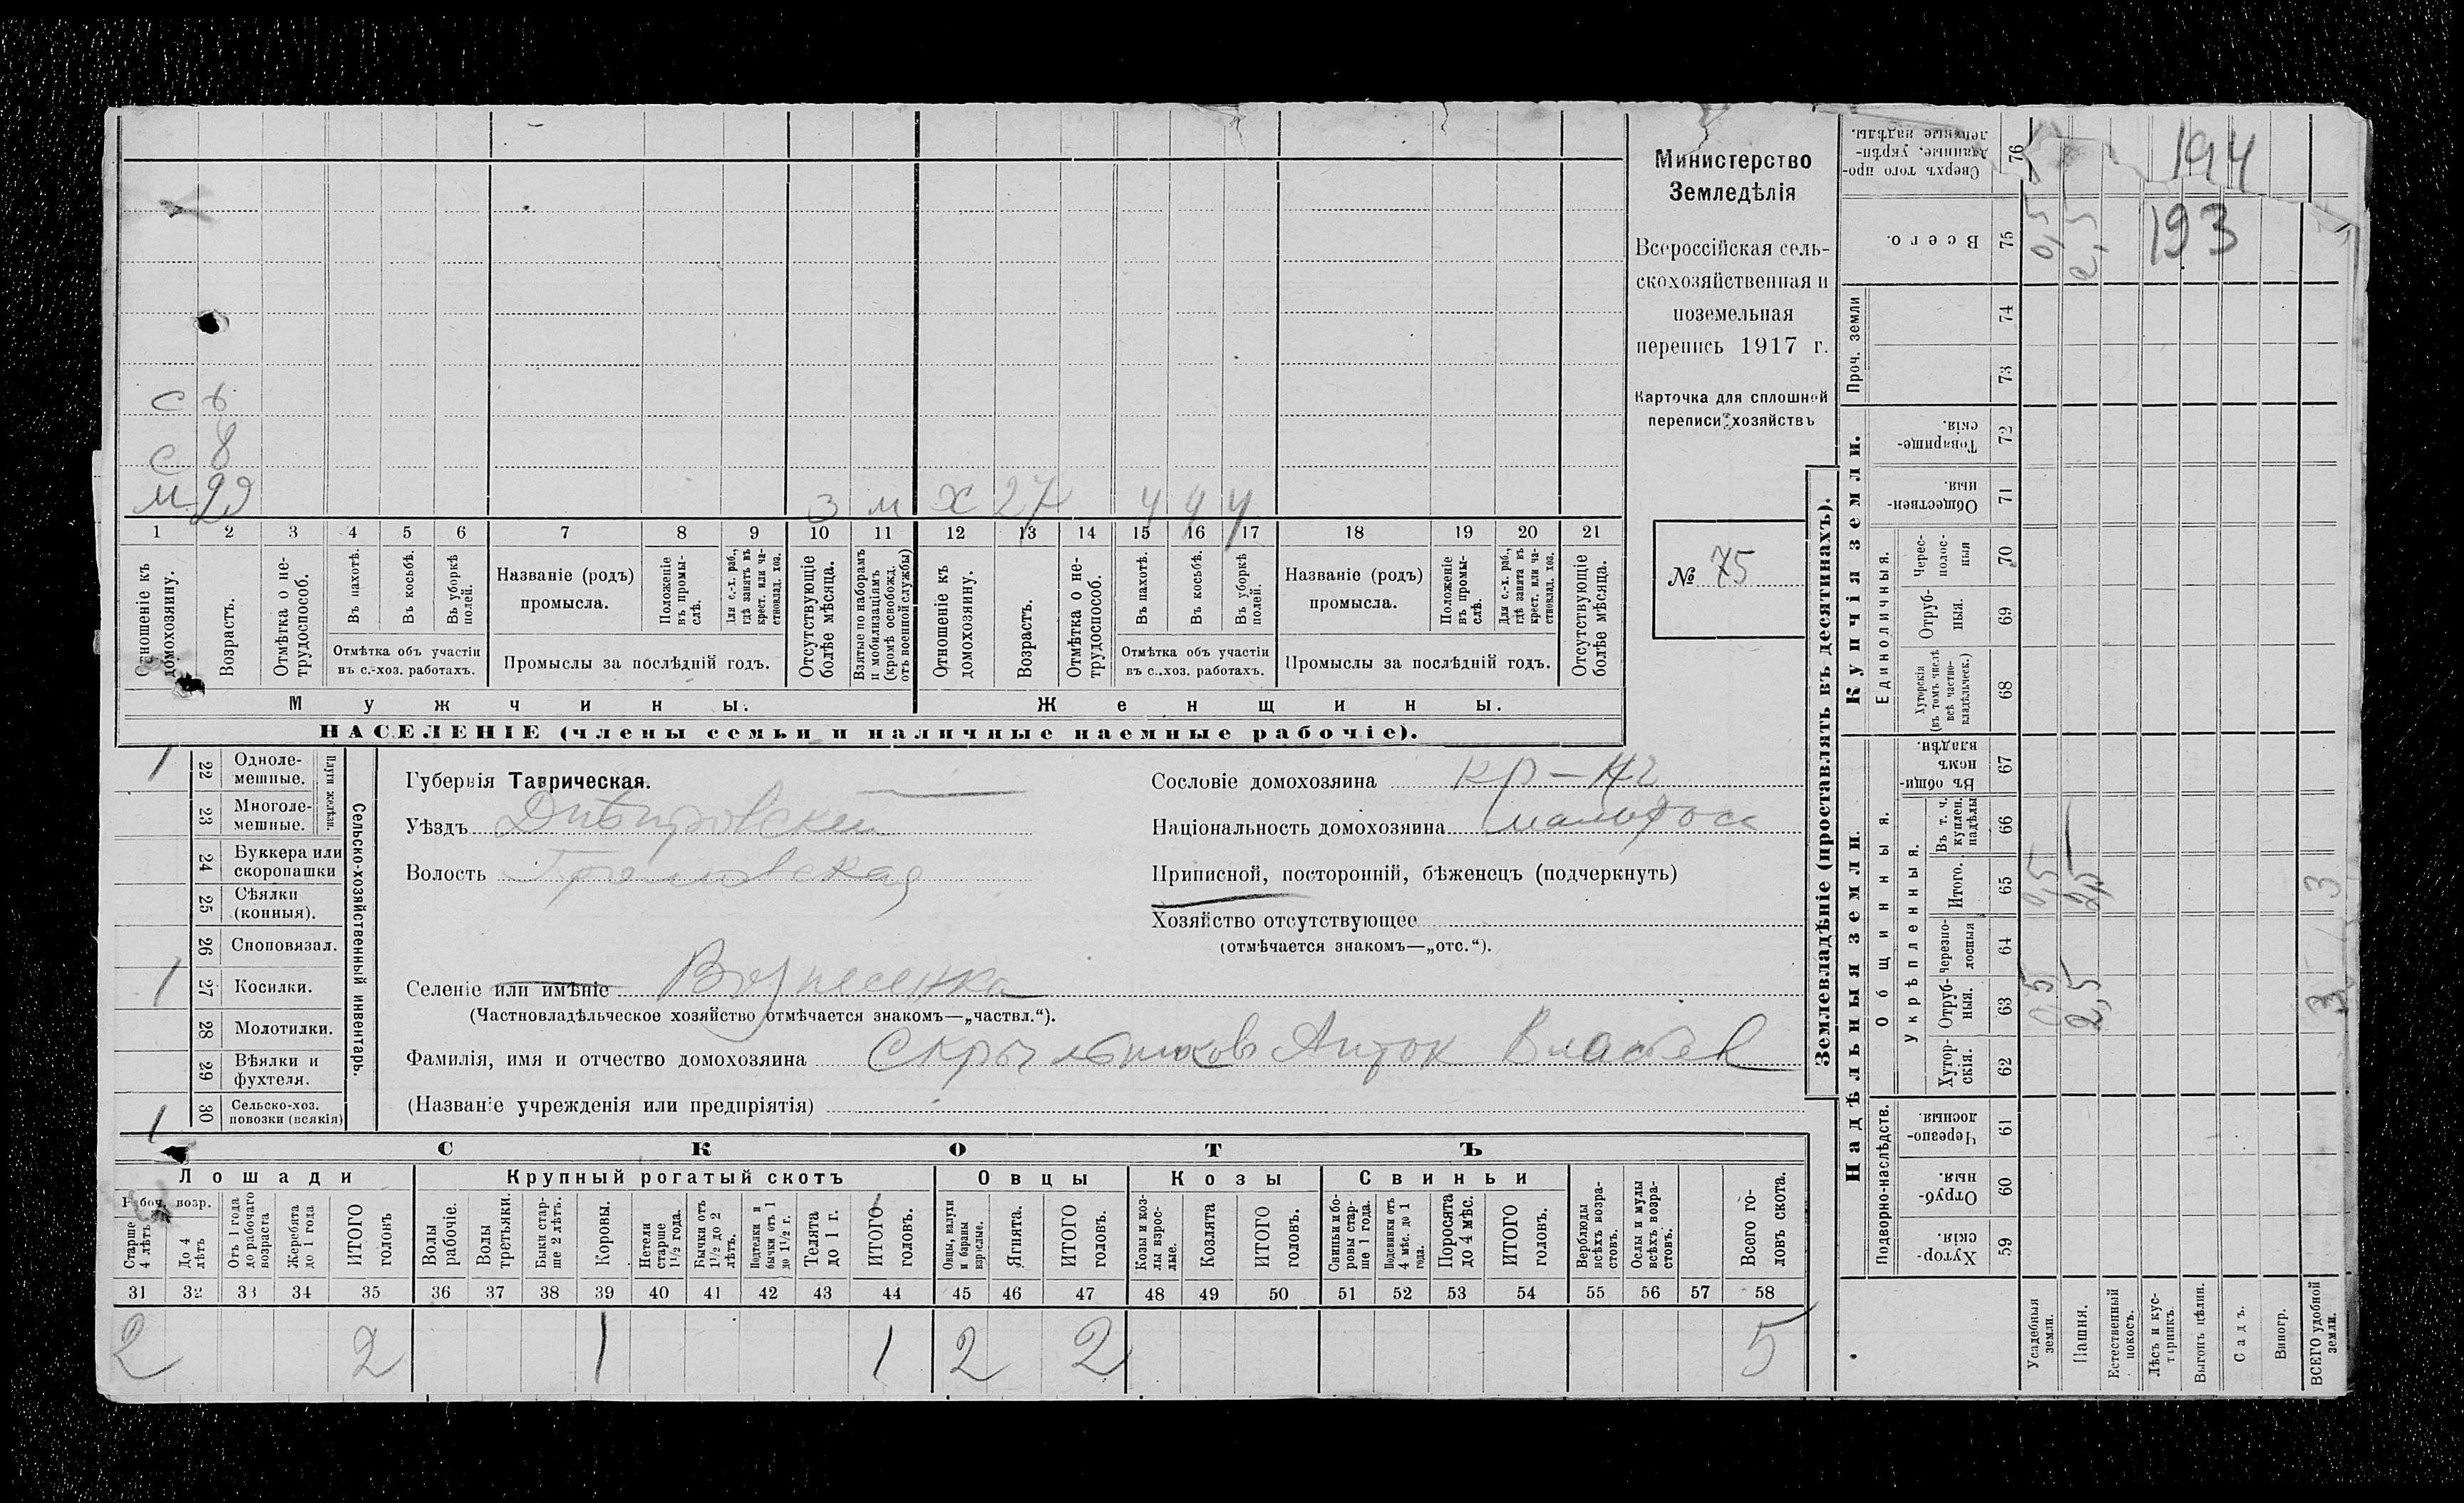 Министерство
Земледѣлія
Всероссійская сель-
скохозяйственная и
поземельная
перепись 1917 г.
Карточка для сплошной
переписи хозяйствъ
№ 75
с 6
с 8
м 29 3 м х 27 ч ч ч
1 2 3 4 5 6 7 8 9 10 11 12 13 14 15 16 17 18 19 20 21
Отношеніе къ домохозяину.
Возрастъ.
Отмѣтка о не-трудоспособ.
Въ пахотѣ.
Въ косьбѣ.
Въ уборкѣ полей.
Отмѣтка объ участіи
въ с.-хоз. работахъ.
Названіе (родъ)
промысла.
Положеніе въ промы-слѣ.
Для с.-х. раб., гдѣ занятъ въ крест. или ча-стновлад. хоз.
Промыслы за послѣдній годъ.
Отсутствующіе болѣе мѣсяца.
Взятые по наборамъ и мобилизаціямъ (кромѣ освобожд. отъ военной службы)
Отношеніе къ домохозяину.
Возрастъ.
Отмѣтка о не-трудоспособ.
Въ пахотѣ.
Въ косьбѣ.
Въ уборкѣ полей.
Отмѣтка объ участіи
въ с.-хоз. работахъ.
Названіе (родъ)
промысла.
Положеніе въ промы-слѣ.
Для с.-х. раб., гдѣ занята въ крест. или ча-стновлад. хоз.
Промыслы за послѣдній годъ.
Отсутствующіе болѣе мѣсяца.
Мужчины.
Женщины.
НАСЕЛЕНІЕ (члены семьи и наличные наемные рабочіе).
1 22 Одноле-мешные.
23 Многоле-мешные.
Плуги желѣзн.
24 Буккера или скоропашки
25 Сѣялки (конныя).
26 Сноповязал.
1 27 Косилки.
28 Молотилки.
29 Вѣялки и фухтеля.
1 30 Сельско-хоз. повозки (всякія)
Сельско-хозяйственный инвентарь.
Губернія Таврическая.
Уѣздъ Днѣпровскій
Волость
Селеніе или имѣніе Вознесенка
(Частновладѣльческое хозяйство отмѣчается знакомъ—„частвл.“).
Фамилія, имя и отчество домохозяина
(Названіе учрежденія или предпріятія)
Сословіе домохозяина кр-нъ
Національность домохозяина малоросс
Приписной, посторонній, бѣженецъ (подчеркнуть)
Хозяйство отсутствующее
(отмѣчается знакомъ—„отс.“).
СКОТЪ
Лошади
Крупный рогатый скотъ
Овцы
Козы
Свиньи
Рабоч. возр.
Старше 4 лѣтъ
До 4 лѣтъ
Отъ 1 года до рабочаго возраста
Жеребята до 1 года
ИТОГО головъ
Волы рабочіе.
Волы третьяки.
Быки стар-ше 2 лѣтъ.
Коровы.
Нетели старше 1½ года.
Бычки отъ 1½ до 2 лѣтъ.
Подтелки и бычки отъ 1 до 1½ г.
Телята до 1 г.
ИТОГО головъ.
Овцы, валухи и бараны взрослые.
Ягнята.
ИТОГО головъ.
Козы и коз-лы взрос-лые.
Козлята
ИТОГО головъ.
Свиньи и бо-ровы стар-ше 1 года.
Подсвинки отъ 4 мѣс. до 1 года.
Поросята до 4 мѣс.
ИТОГО головъ.
Верблюды всѣхъ возра-стовъ.
Ослы и мулы всѣхъ возра-стовъ.
Всего го-ловъ скота.
31 32 33 34 35 36 37 38 39 40 41 42 43 44 45 46 47 48 49 50 51 52 53 54 55 56 57 58
2 2 1 1 2 2 5
Землевладѣніе (проставлять въ десятинахъ).
Купчія земли.
Надѣльныя земли
Сверхъ того про-данные, укрѣп-ленные надѣлы.
76
194
Всего.
75
0,5 2,5 193
Проч. земли
74
73
Товарище-скія.
72
Обществен-ныя.
71
Единоличныя.
Черес-полос-ныя
70
Отруб-ныя.
69
Хуторскія (въ томъ числѣ всѣ частно-владѣльческ.)
68
Общинныя.
Въ общи-номъ владѣн.
67
Укрѣпленныя.
Въ т. ч. куплен. надѣлы
66
Итого.
65
0,5 2,5 3
Черезпо-лосныя
64
Отруб-ныя.
63
0,5 2,5 3
Хутор-скія.
62
Подворно-наслѣдств.
Черезпо-лосныя
61
Отруб-ныя.
60
Хутор-скія.
59
Усадебныя земли.
Пашня.
Естественный покосъ.
Лѣсъ и кус-тарникъ.
Выгонъ цѣлин.
Садъ.
Виногр.
ВСЕГО удобной земли.